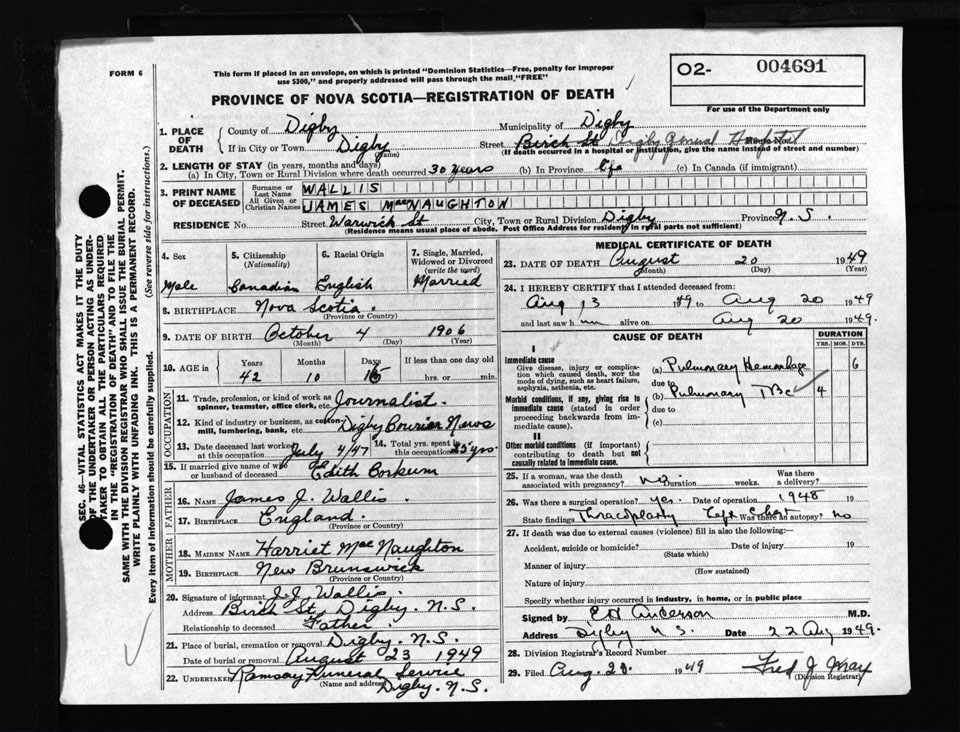 FORM 6
This form if placed in an envelope, on which is printed "Dominion Statistics—Free, penalty for improper
use $300," and properly addressed will pass through the mail "FREE"
PROVINCE OF NOVA SCOTIA—REGISTRATION OF DEATH
02- 004691
For use of the Department only
1. PLACE OF DEATH
County of Digby Municipality of Digby
If in City or Town Digby (Name) Street Birch St Digby General Hospital House No.
(If death occurred in a hospital or institution, give the name instead of street and number)
2. LENGTH OF STAY (in years, months and days)
(a) In City, Town or Rural Division where death occurred 30 years (b) In Province life (c) In Canada (if immigrant)
3. PRINT NAME OF DECEASED
Surname or Last Name WALLIS
All Given or Christian Names JAMES MacNAUGHTON
RESIDENCE No. Street Warwick St City, Town or Rural Division Digby Province N.S.
(Residence means usual place of abode. Post Office Address for residency in rural parts not sufficient)
4. Sex
Male
5. Citizenship (Nationality)
Canadian
6. Racial Origin
English
7. Single, Married, Widowed or Divorced (write the word)
Married
8. BIRTHPLACE Nova Scotia.
(Province or Country)
9. DATE OF BIRTH October 4 1906
(Month) (Day) (Year)
10. AGE in Years 42 Months 10 Days 16 If less than one day old
hrs. or min.
OCCUPATION
11. Trade, profession, or kind of work as spinner, teamster, office clerk, etc. Journalist.
12. Kind of industry or business, as cotton mill, lumbering, bank, etc. Digby Courier News
13. Date deceased last worked at this occupation July 4/47 14. Total yrs. spent in this occupation 25 yrs.
15. If married give name of wife or husband of deceased Edith Borkum
FATHER
16. NAME James J. Wallis.
17. BIRTHPLACE England.
(Province or Country)
MOTHER
18. MAIDEN NAME Harriet MacNaughton
19. BIRTHPLACE New Brunswick
(Province or Country)
20. Signature of informant J. J. Wallis.
Address Birch St. Digby. N.S.
Relationship to deceased Father.
21. Place of burial, cremation or removal Digby. N.S.
Date of burial or removal August 23 1949
22. UNDERTAKER Ramsay Funeral Service
(Name and address) Digby. N.S.
MEDICAL CERTIFICATE OF DEATH
23. DATE OF DEATH August 20 1949
(Month) (Day) (Year)
24. I HEREBY CERTIFY that I attended deceased from:
Aug 13 1949 to Aug 20 1949
and last saw him alive on Aug 20 1949.
CAUSE OF DEATH DURATION
YRS. MOS. DYS.
I
Immediate cause
Give disease, injury or complication which caused death, not the mode of dying, such as heart failure, asphyxia, asthenia, etc.
(a) Pulmonary Hemorrhage 6
due to
Morbid conditions, if any, giving rise to immediate cause (stated in order proceeding backwards from immediate cause).
(b) Pulmonary TBc 4
due to
(c)
II
Other morbid conditions (if important) contributing to death but not causally related to immediate cause.
25. If a woman, was the death associated with pregnancy? no Duration weeks. Was there a delivery?
26. Was there a surgical operation? yes. Date of operation 1948 19
State findings Thracoplasty Left Chest Was there an autopsy? no
27. If death was due to external causes (violence) fill in also the following:—
Accident, suicide or homicide? Date of injury 19
(State which)
Manner of injury
(How sustained)
Nature of injury
Specify whether injury occurred in industry, in home, or in public place
Signed by E H Anderson M.D.
Address Digby N S. Date 22 Aug 1949.
28. Division Registrar's Record Number
29. Filed Aug. 1949 Fred J.
(Division Registrar)
SEC. 46—VITAL STATISTICS ACT MAKES IT THE DUTY
OF THE UNDERTAKER OR PERSON ACTING AS UNDER-
TAKER TO OBTAIN ALL THE PARTICULARS REQUIRED
IN THE "REGISTRATION OF DEATH" AND TO FILE THE
SAME WITH THE DIVISION REGISTRAR WHO SHALL ISSUE THE BURIAL PERMIT.
WRITE PLAINLY WITH UNFADING INK. THIS IS A PERMANENT RECORD.
Every item of information should be carefully supplied. (See reverse side for instructions.)